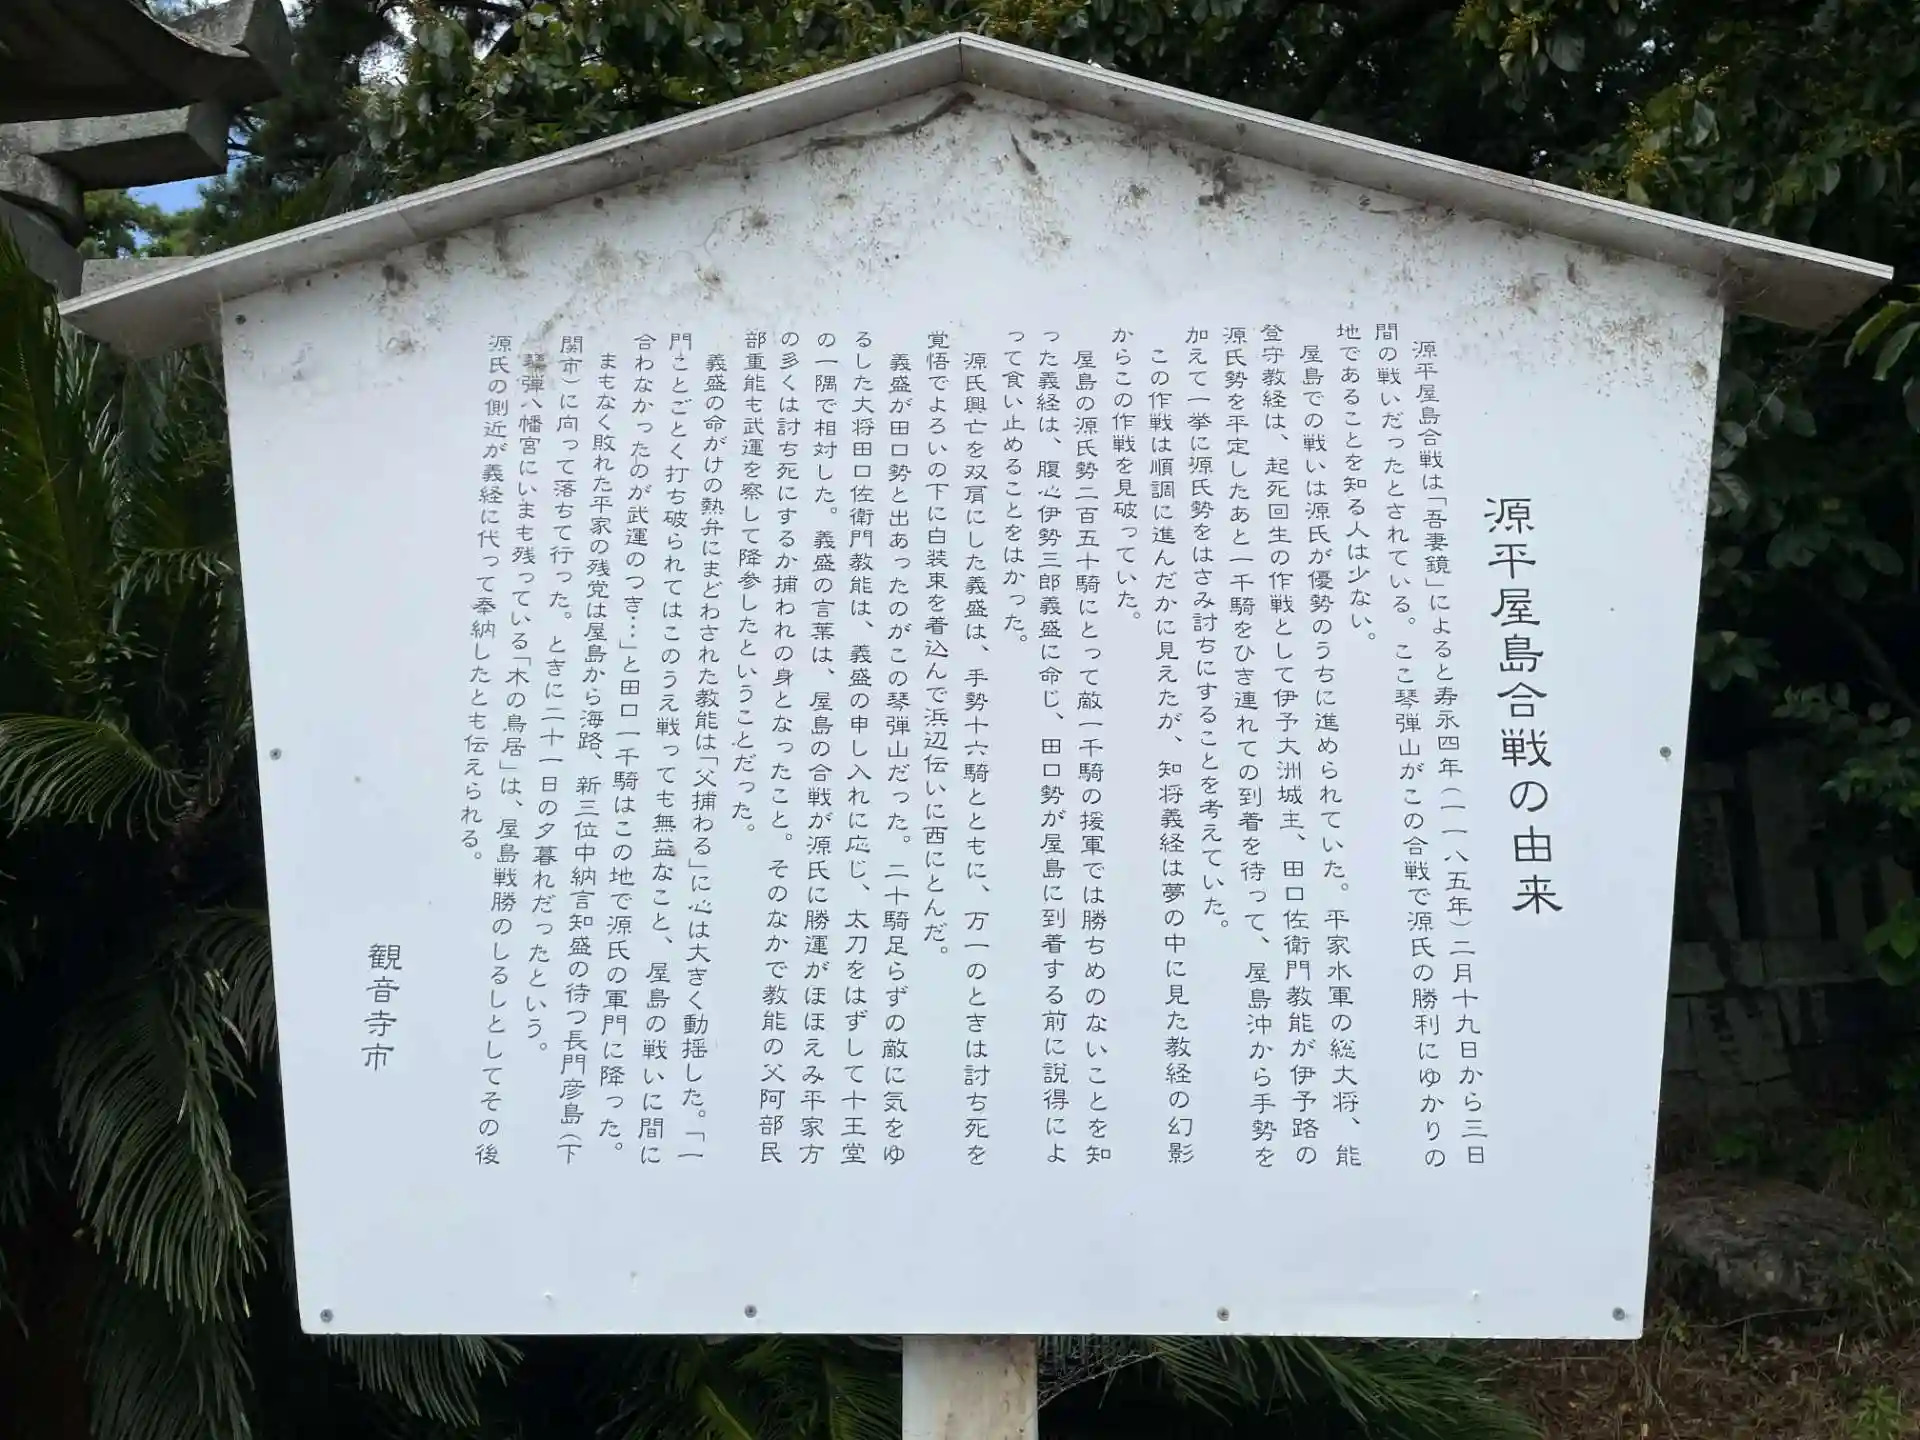 源平屋島合戦の由来
源平屋島合戦は「吾妻鏡」によると寿永四年(一一八五年)二月十九日から三日
間の戦いだったとされている。ここ琴弾山がこの合戦で源氏の勝利にゆかりの
地であることを知る人は少ない。
屋島での戦いは源氏が優勢のうちに進められていた。平家水軍の総大将、能
登守教経は、起死回生の作戦として伊予大洲城主、田口佐衛門教能が伊予路の
源氏勢を平定したあと一千騎をひき連れての到着を待って、屋島沖から手勢を
加えて一挙に源氏勢をはさみ討ちにすることを考えていた。
この作戦は順調に進んだかに見えたが、知将義経は夢の中に見た教経の幻影
からこの作戦を見破っていた。
屋島の源氏勢二百五十騎にとって敵一千騎の援軍では勝ちめのないことを知
った義経は、腹心伊勢三郎義盛に命じ、田口勢が屋島に到着する前に説得によ
って食い止めることをはかった。
源氏興亡を双肩にした義盛は、手勢十六騎とともに、万一のときは討ち死を
覚悟でよろいの下に白装束を着込んで浜辺伝いに西にとんだ。
義盛が田口勢と出あったのがこの琴弾山だった。二十騎足らずの敵に気をゆ
るした大将田口佐衛門教能は、義盛の申し入れに応じ、太刀をはずして十王堂
の一隅で相対した。義盛の言葉は、屋島の合戦が源氏に勝運がほほえみ平家方
の多くは討ち死にするか捕われの身となったこと。そのなかで教能の父阿部民
部重能も武運を察して降参したということだった。
義盛の命がけの熱弁にまどわされた教能は「父捕わる」に心は大きく動揺した。「一
門ことごとく打ち破られてはこのうえ戦っても無益なこと、屋島の戦いに間に
合わなかったのが武運のつき…」と田口一千騎はこの地で源氏の軍門に降った。
まもなく敗れた平家の残党は屋島から海路、新三位中納言知盛の待つ長門彦島(下
関市)に向って落ちて行った。ときに二十一日の夕暮れだったという。
琴弾八幡宮にいまも残っている「木の鳥居」は、屋島戦勝のしるしとしてその後
源氏の側近が義経に代って奉納したとも伝えられる。
観音寺市